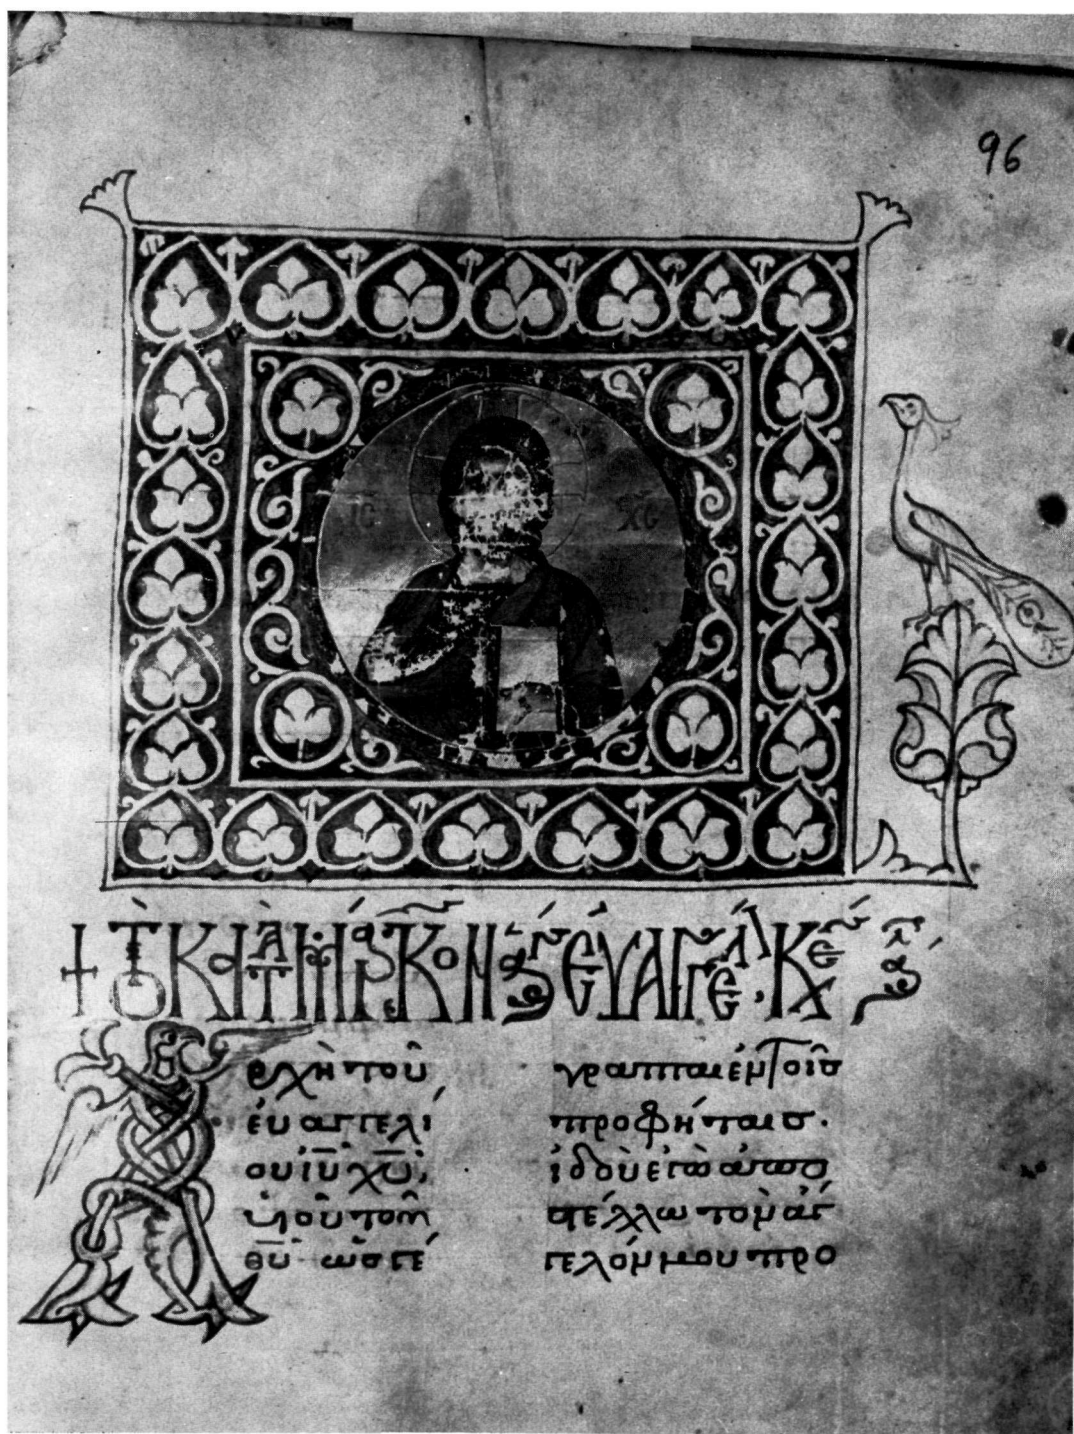 96
ΙC ΧC
+ ΤὸΚΑΤὰΜάΡΚΟΝ ἅΓ ΕὐΑΓΓΕΛ, ΚΕ Α
ρχὴ τοῦ
ἐυαγγελί
ου ἰῦ χῦ,
ὑιοῦ τοῦ
θῦ· ὡς γέ
γραπται ἐν τοῖσ
προφήταισ·
ἰδοὺ ἐγὼ ἀπο
στέλλω τὸν ἄγ
γελόν μου προ